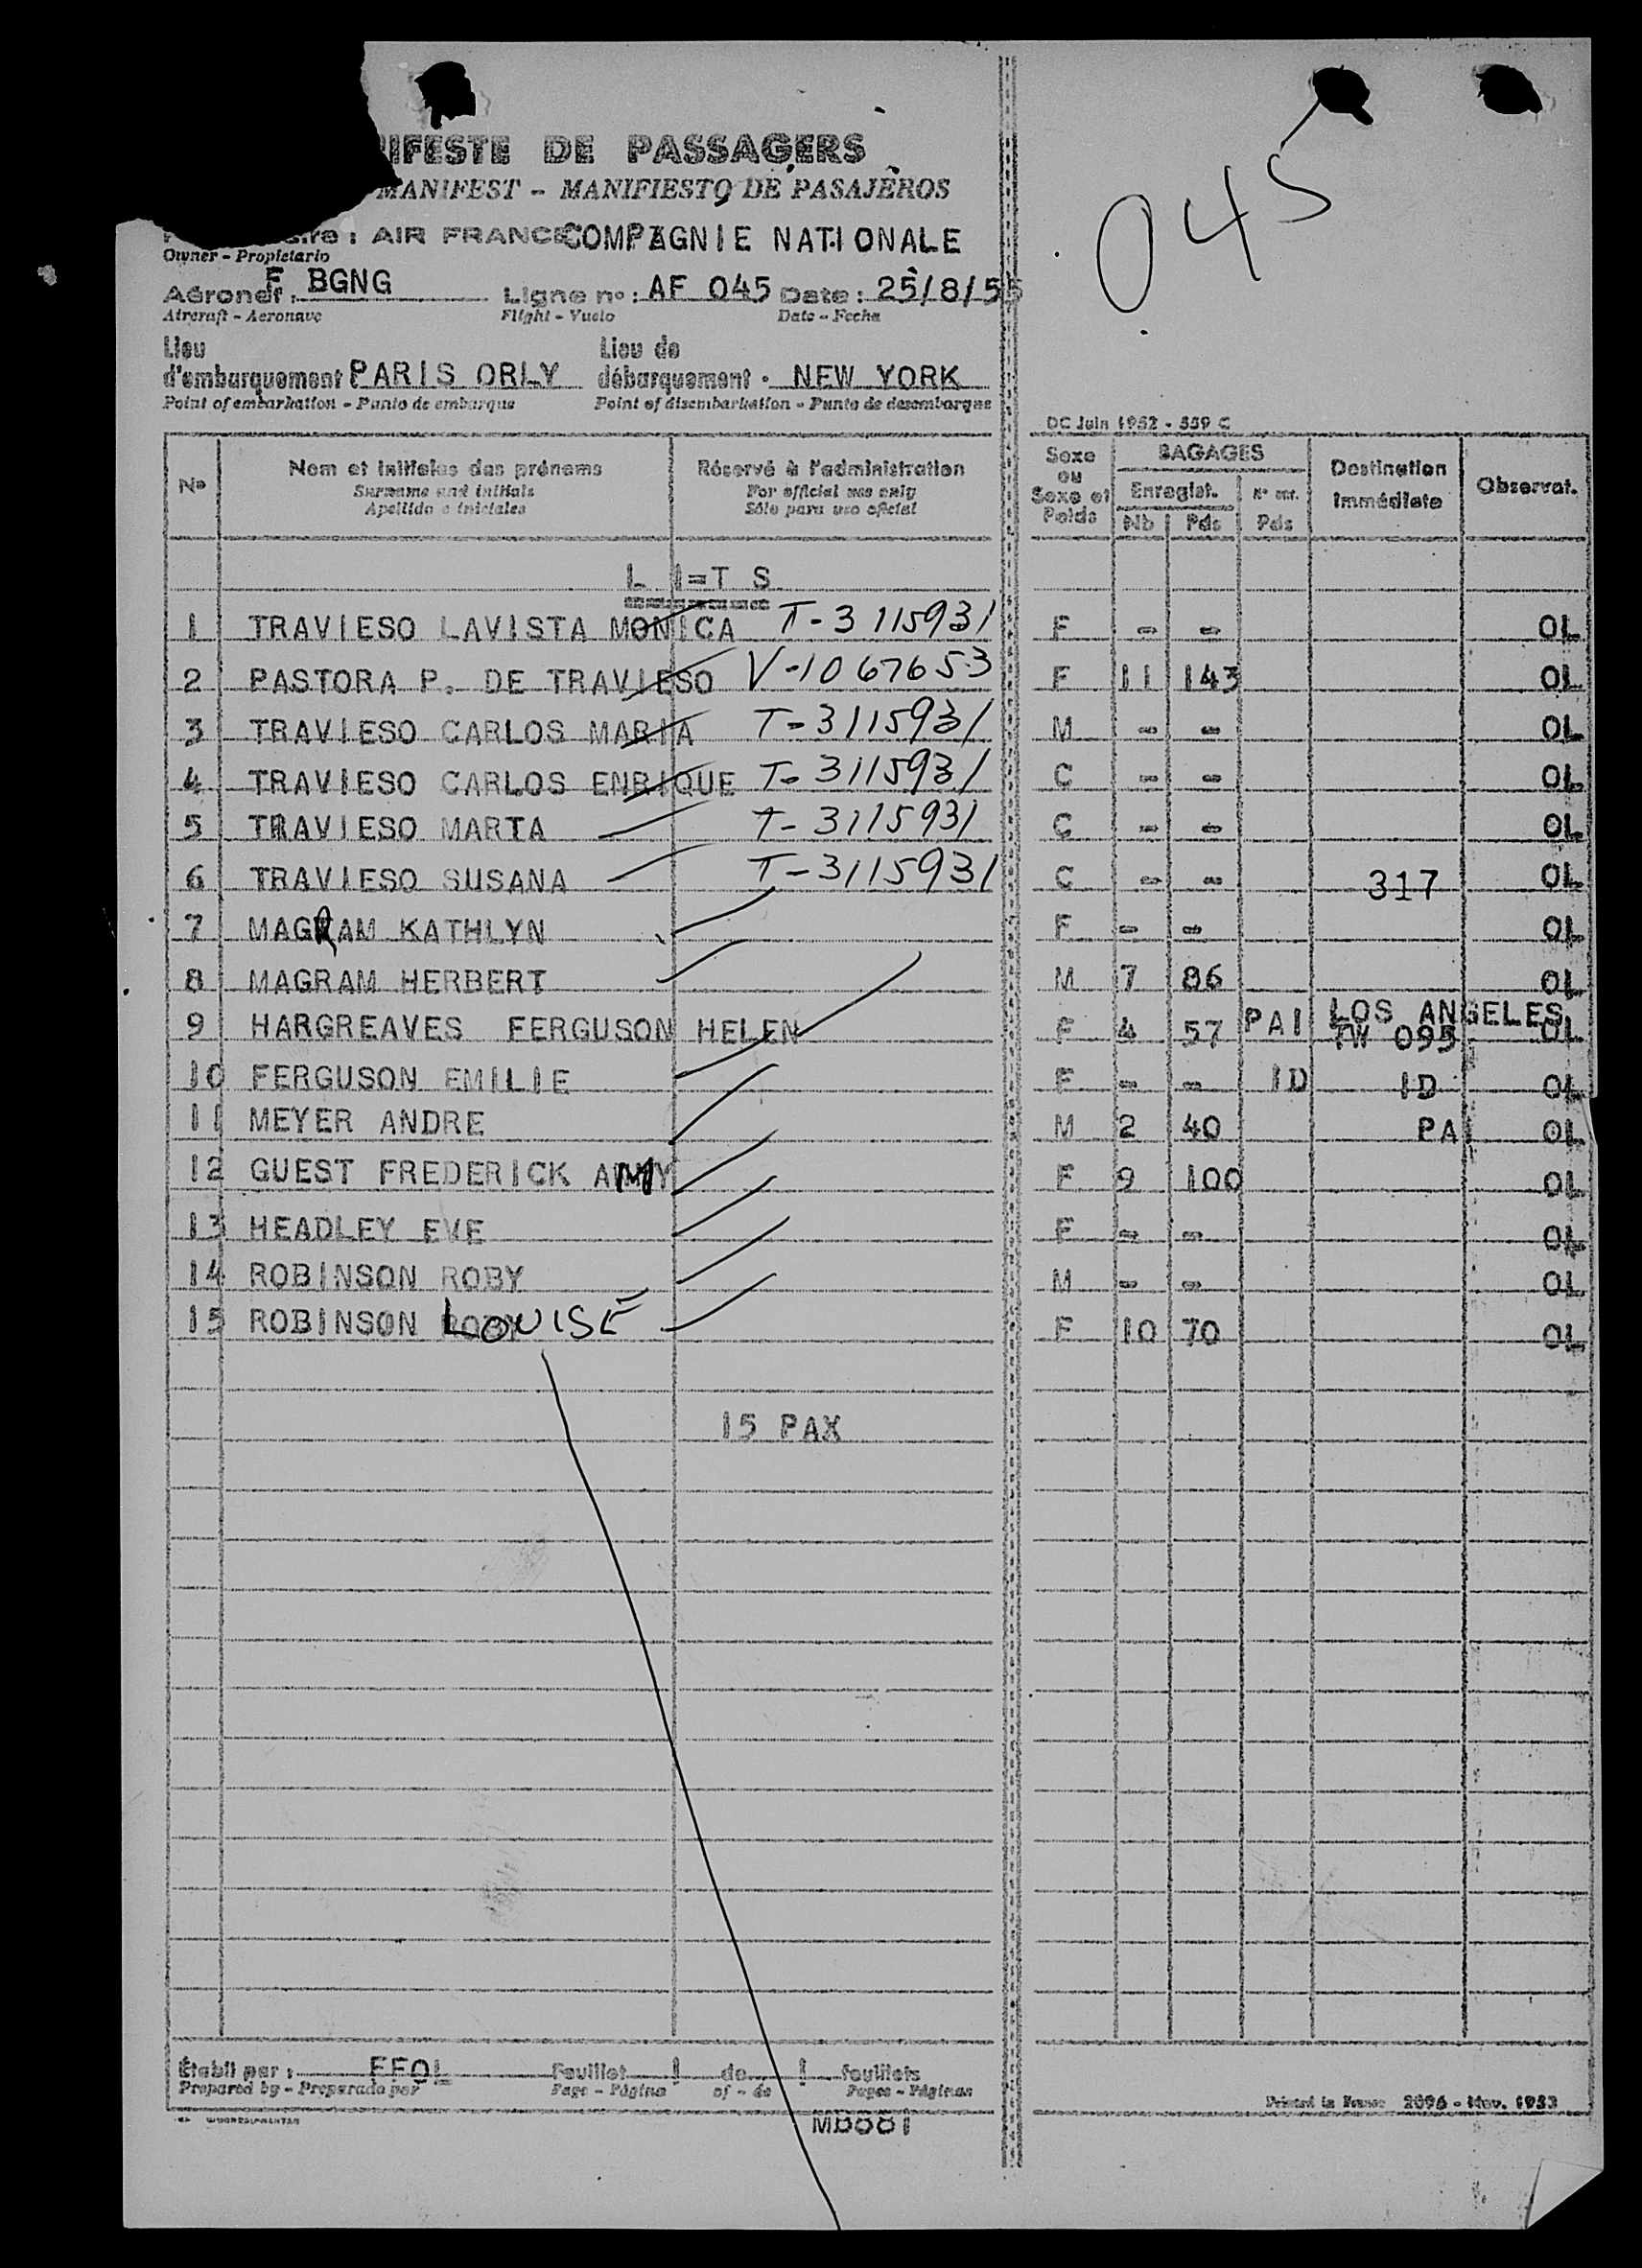 IFESTE DE PASSAGERS
045
MANIFEST - MANIFIESTO DE PASAJEROS
AIR FRANCE COMPAGNIE NATIONALE
Owner - Propietario
Aéronef : F BGNG Ligne n° : AF 045 Date : 25/8/55
Aircraft - Aeronave Flight - Vuelo Date - Fecha
Lieu Lieu de
d'embarquement PARIS ORLY débarquement NEW YORK
Point of embarkation - Punto de embarque Point of disembarkation - Punto de desembarque
DC Juin 1952 - 559 C
N° Nom et initiales des prénoms Réservé à l'administration Sexe ou Sexe et Poids BAGAGES Destination immédiate Observat.
Surname and initials For official use only Enregist.
Apellido e iniciales Sólo para uso oficial Nb Pds Pds
L I=T S
1 TRAVIESO LAVISTA MONICA T-3115931 F - - OL
2 PASTORA P. DE TRAVIESO V-1067653 F 11 143 OL
3 TRAVIESO CARLOS MARIA T-3115931 M - - OL
4 TRAVIESO CARLOS ENRIQUE T-3115931 C - - OL
5 TRAVIESO MARTA T-3115931 C - - OL
6 TRAVIESO SUSANA T-3115931 C - - 317 OL
7 MAGRAM KATHLYN F - - OL
8 MAGRAM HERBERT M 7 86 OL
9 HARGREAVES FERGUSON HELEN F 4 57 PAI LOS ANGELES TW 095 OL
10 FERGUSON EMILIE F - - ID ID OL
11 MEYER ANDRE M 2 40 PAI OL
12 GUEST FREDERICK AMY F 9 100 OL
13 HEADLEY EVE F - - OL
14 ROBINSON ROBY M - - OL
15 ROBINSON LOUISE F 10 70 OL
15 PAX
Établi par : FFOL Feuillet 1 de 1 feuillets
Prepared by - Preparado por Page - Página of - de Pages - Páginas
Printed in France 2096 - Nov. 1953